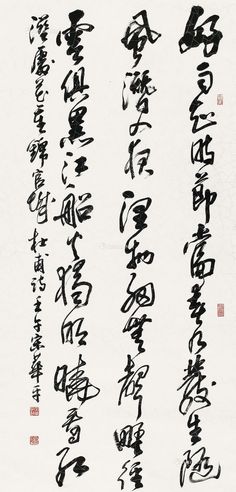 好雨知时節当春乃發生随
風潜入夜潤物細無聲野径
雲俱黑江船火獨明曉看红
湿處花重錦官城 杜甫诗 壬午 宋華平